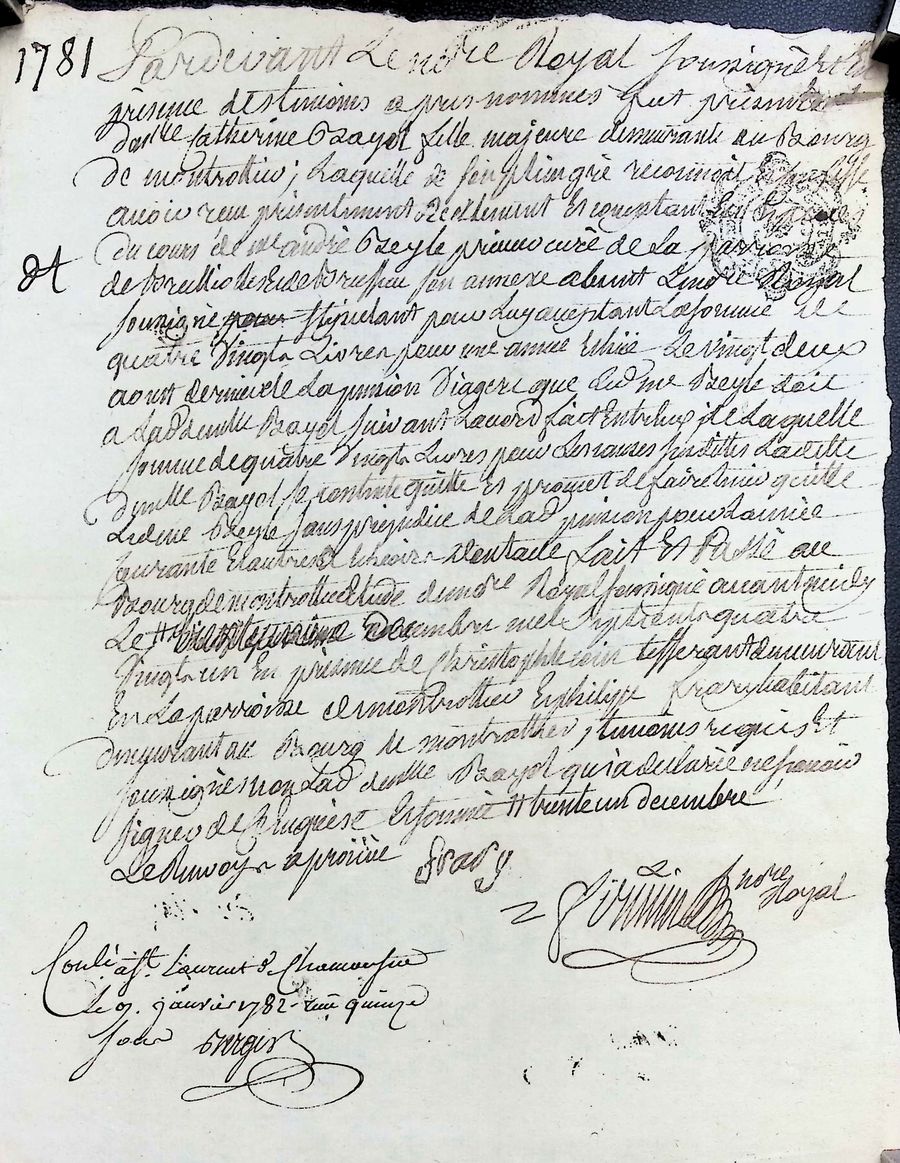 1781 Pardevant Le nore Royal soussigné et En
présence des temoins cy apres nommés fut presente
damlle Catherine Bayol fille majeure demeurante au Bourg
de montrottier; Laquelle de son plein gré reconnoit et confesse
avoir recu presentement Reellement et comptant en Especes
du cours de me andré Beyle curé de La parroisse
de Brullioles et de Brussieu son annexe absent Le nore Royal
dt
soussigné pour stipulant pour Luy acceptant La somme de
quatre Vingts Livres pour une année Echüe Le vingt deux
aoust dernier de La pension Viagere que Ledt me Beyle doit
a Lad demlle Bayol suivant Lacord fait Entre Eux, de Laquelle
somme de quatre Vingts Livres pour Les causes susdittes Laditte
demlle Bayol se contente quitte et promet de faire tenir quitte
Ledt me Beyle sans prejudice de Lad pension pour L'année
Courante Et autres dt dont acte fait et Passé au
Bourg de montrottier Etude du nore Royal soussigné avant midy
Le # decembre mil sept cents quatre
Vingt un En présence de Christophe tisserant demeurant
En La parroisse de montrottier Et philippe frary habitant
demeurant au Bourg de montrottier, temoins requis Et
soussignés non Lad demlle Bayol qui a declarée ne sçavoir
signer de ce Enquise Et sommée # trente un decembre
Le Renvoy approuvé frary
nore Royal
Conlé a St Laurent d Chamousset
Le 9. janvier 1782 - reçu quinze
sous